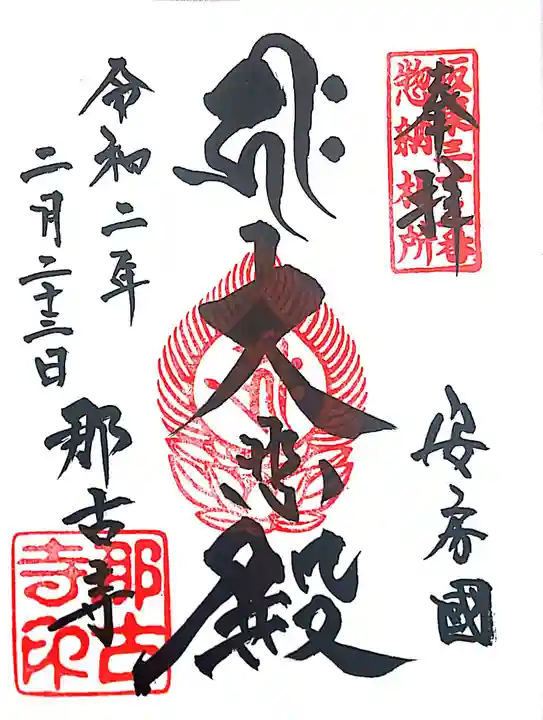 奉拝
坂東三十三番
惣納札所
安房國
キリーク
大悲殿
令和二年
二月二十三日
那古寺
那古寺印